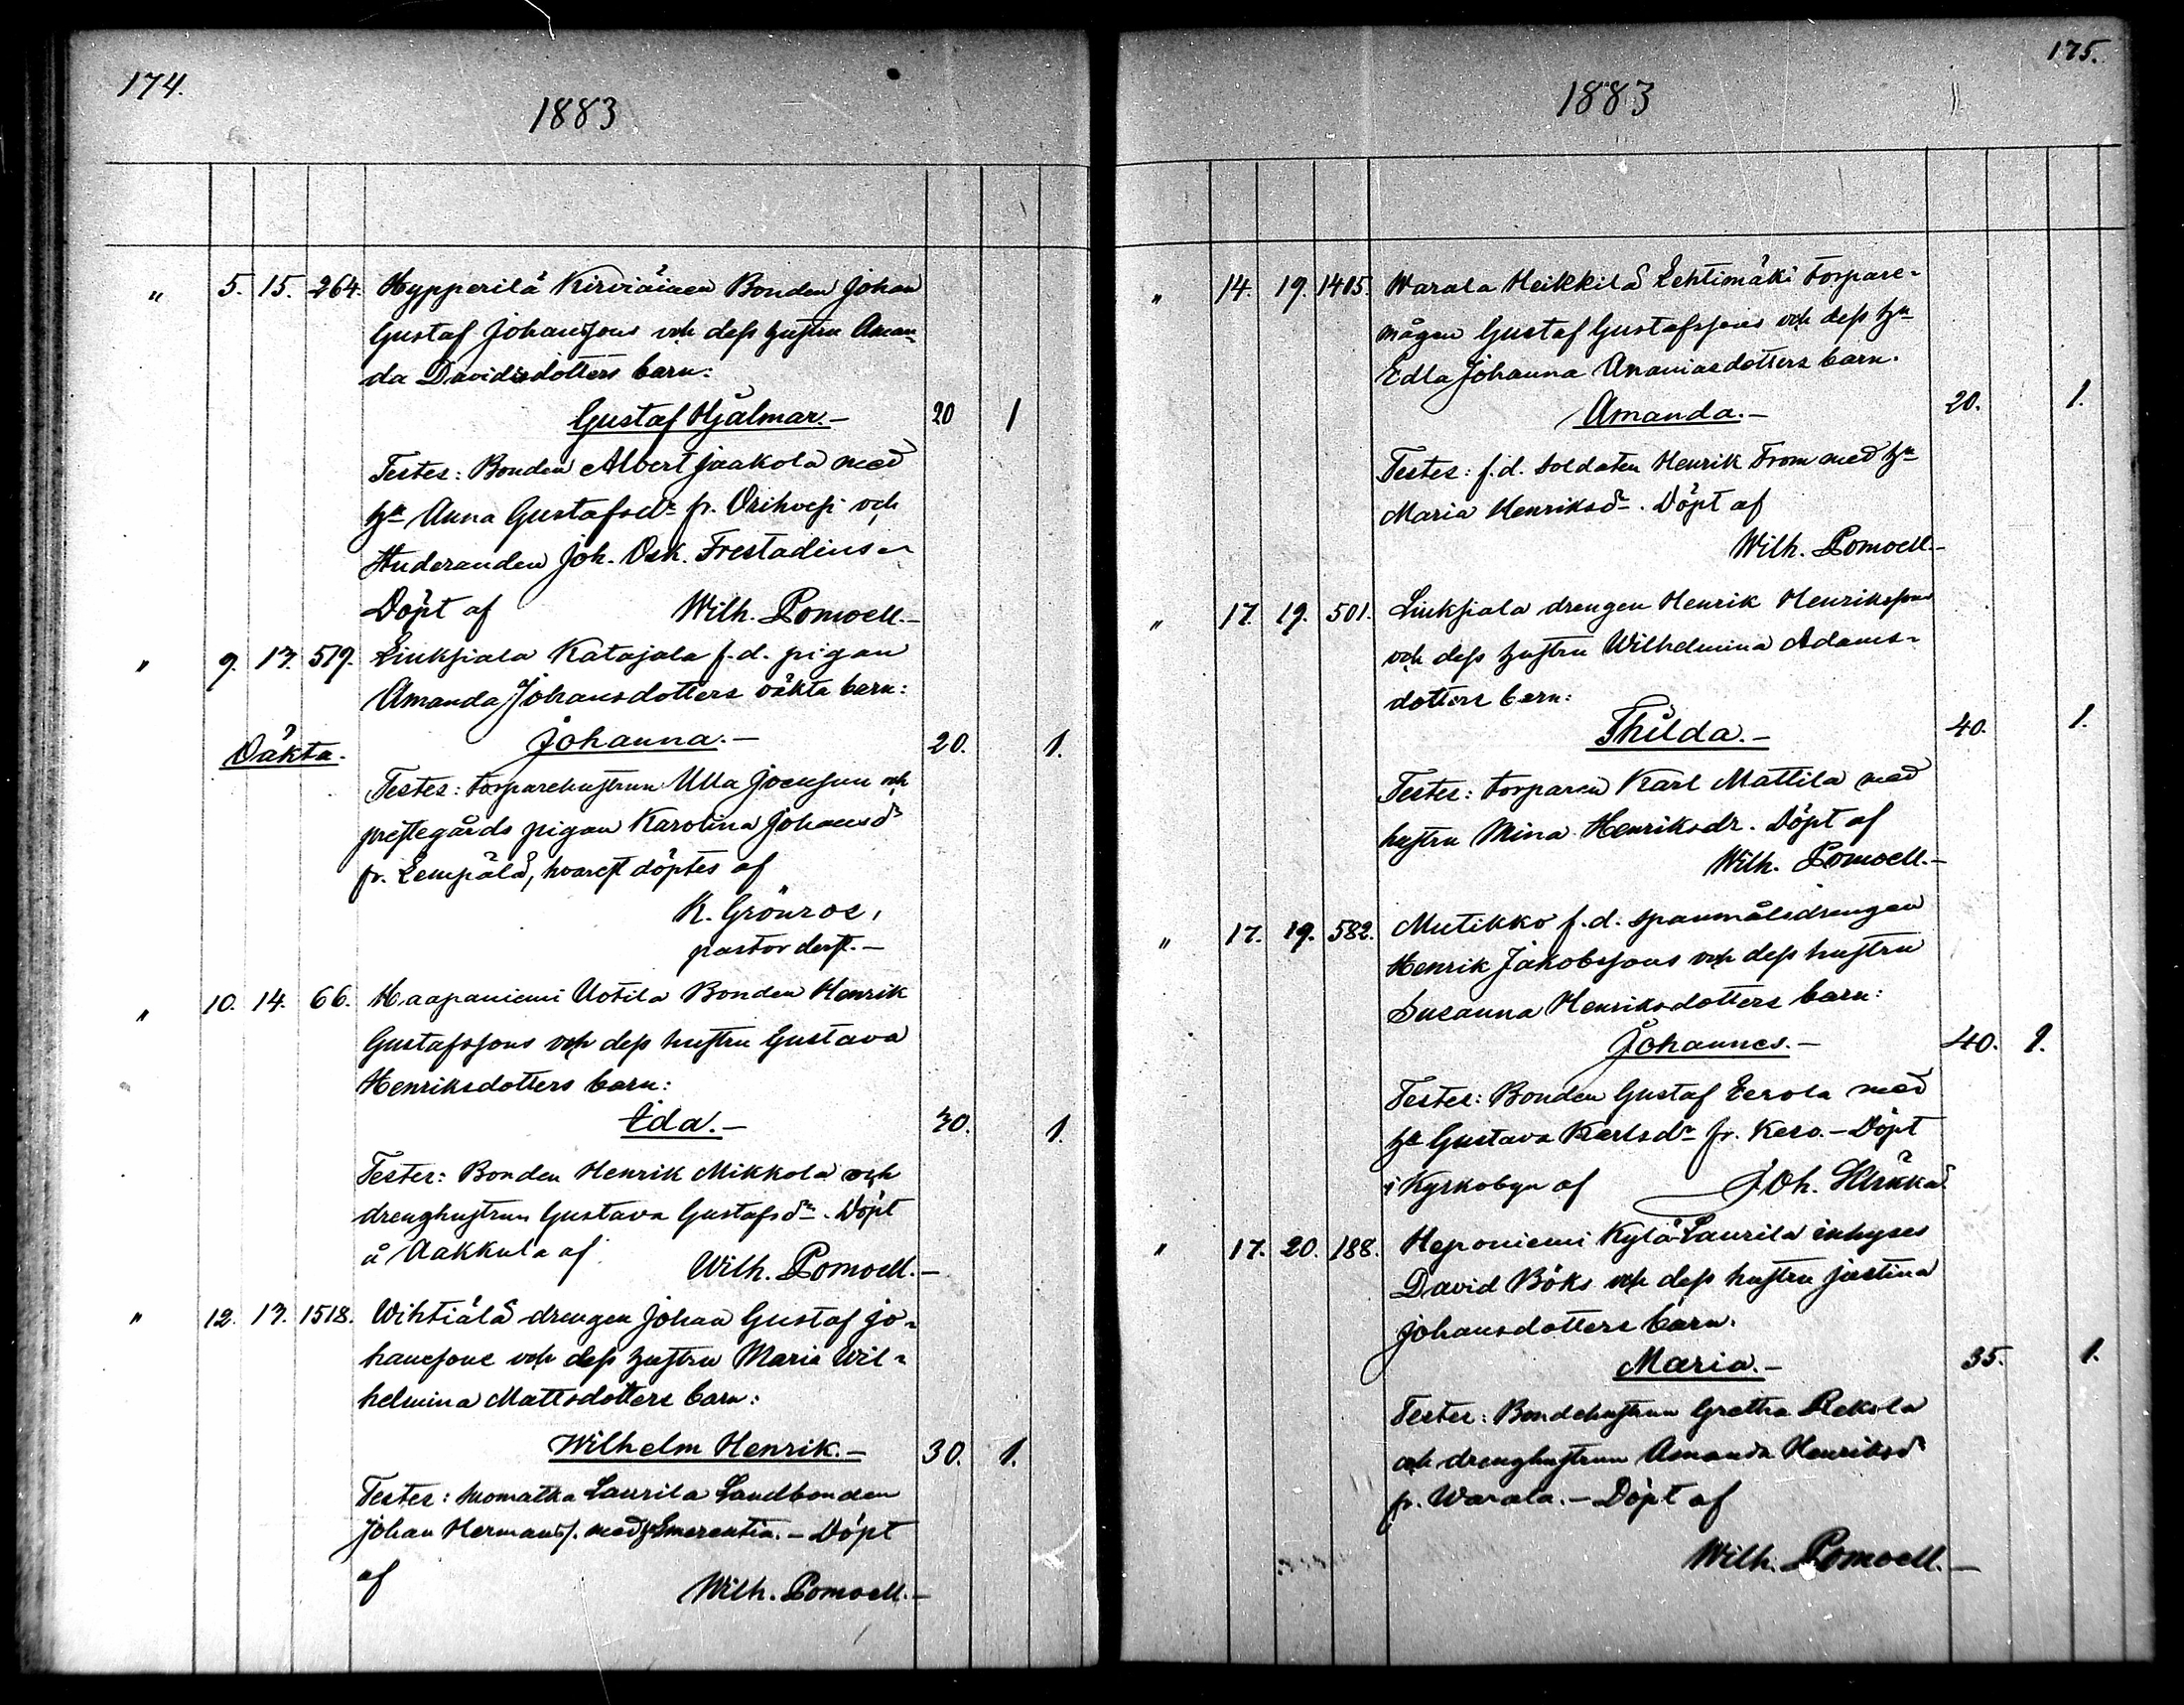 174.
1883
" 5. 15. 264. Hypperilä Kirviäinen Bonden Johan
Gustaf Johanssons och dess hustru Aman-
da Davidsdotters barn:
Gustaf Hjalmar.- 20 1
Testes: Bonden Albert Jaakola med
h:u Anna Gustafsdr fr. Orihvesi och
Studeranden Joh. Osk. Frestadius-
Döpt af Wilh. Pomoell.-
" 9. 17. 519. Liuksiala Katajala f.d. pigan
Amanda Johansdotters oäkta barn:
Oäkta. Johanna.- 20. 1.
Testes: torparehustrun Ulla Joensuu och
prestegårds pigan Karolina Johansdr
fr. Lempälä, hvarest döptes af
K. Grönroos,
pastor derst.-
" 10. 14. 66. Haapaniemi Uotila Bonden Henrik
Gustafssons och dess hustru Gustava
Henriksdotters barn:
Ida.- 30. 1.
Testes: Bonden Henrik Mikkola och
drenghustrun Gustava Gustafsdr. Döpt
å Aakkula af Wilh. Pomoell.-
" 12. 17. 1518. Wihtiälä drengen Johan Gustaf Jo-
hanssons och dess hustru Maria Wil-
helmina Mattsdotters barn:
Wilhelm Henrik.- 30. 1.
Testes: Suomatka Laurila Landbonden
Johan Hermanss. med h. Emerentia.- Döpt
af Wilh. Pomoell.-
175.
1883
" 14. 19. 1415. Warala Heikkilä Lehtimäki torpare-
mågen Gustaf Gustafssons och dess h:u
Edla Johanna Ananiasdotters barn.
Amanda.- 20. 1.
Testes: f.d. Soldaten Henrik From med h:u
Maria Henriksdr. Döpt af
Wilh. Pomoell.-
" 17. 19. 501. Liuksiala drengen Henrik Henrikssons
och dess hustru Wilhelmina Adams-
dotters barn:
Thilda.- 40. 1.
Testes: torparen Karl Mattila med
hustru Mina Henriksdr. Döpt af
Wilh. Pomoell.-
" 17. 19. 582. Mutikko f.d. spanmålsdrengen
Henrik Jakobssons och dess hustru
Susanna Henriksdotters barn:
Johannes.- 40. 1.
Testes: Bonden Gustaf Eerola med
h:u Gustava Karlsdr fr. Keso.- Döpt
i Kyrkobyn af Joh.
" 17. 20. 188. Heponiemi Kylä-Laurila inhyses
David Böks och dess hustru Justina
Johansdotters barn.
Maria.- 35. 1.
Testes: Bondehustrun Gretha Rekola
och drenghustrun Amanda Henriksdr
fr. Warala.- Döpt af
Wilh. Pomoell.-